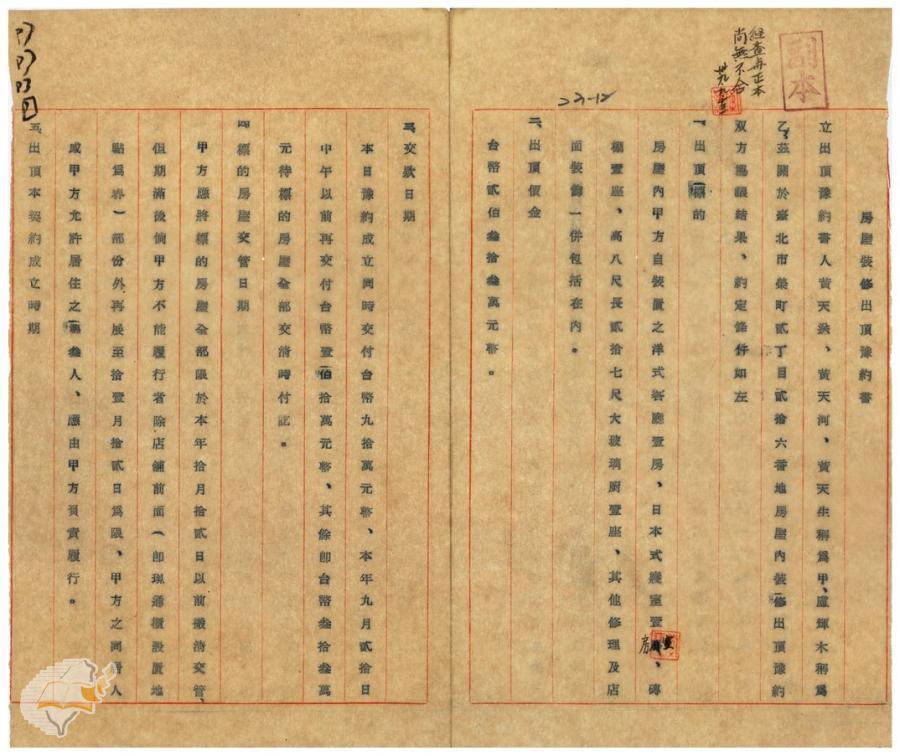 副本
經查與正本
尚無不合
房屋裝修出頂豫約書
立出頂豫約書人黃天送、黃天河、黃天生稱為甲、盧輝木稱為
乙、茲關於臺北市榮町貳丁目貳拾六番地房屋內裝修出頂豫約
双方協議結果、約定條件如左
一、出頂標的
房屋內甲方自裝置之洋式客廳壹房、日本式寢室壹房、磚
樓壹座、高八尺長貳拾七尺大玻璃廚壹座、其他修理及店
面裝飾一併包括在內。
二、出頂價金
台幣貳佰叁拾叁萬元整。
三、交欵日期
本日豫約成立同時交付台幣九拾萬元整、本年九月貳拾日
中午以前再交付台幣壹佰拾萬元整、其餘即台幣叁拾叁萬
元待標的房屋全部交清時付訖。
四、標的房屋交管日期
甲方應將標的房屋全部限於本年拾月拾貳日以前搬清交管、
但期滿後倘甲方不能履行者除店舖前面(即現藥櫃設置地
點為界)部份外再展至拾壹月拾貳日為限、甲方之同居人
或甲方允許居住之第叁人、應由甲方負責履行。
五、出頂本契約成立時期